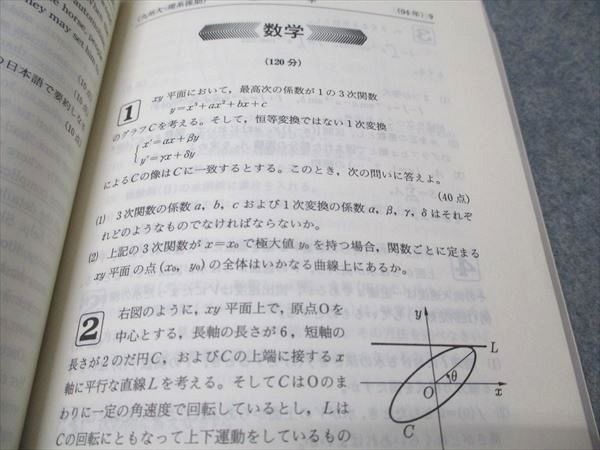 (九州大-理系後期)
(94年) 9
数学
(120分)
1 xy平面において，最高次の係数が1の3次関数
y=x³+ax²+bx+c
のグラフCを考える。そして，恒等変換ではない1次変換
x'=αx+βy
y'=γx+δy
によるCの像はCに一致するとする。このとき，次の問いに答えよ。
(40点)
(1) 3次関数の係数a，b，cおよび1次変換の係数α，β，γ，δはそれぞ
れどのようなものでなければならないか。
(2) 上記の3次関数がx=x₀で極大値y₀を持つ場合，関数ごとに定まる
xy平面の点(x₀，y₀)の全体はいかなる曲線上にあるか。
2 右図のように，xy平面上で，原点Oを
中心とする，長軸の長さが6，短軸の
長さが2のだ円C，およびCの上端に接するx
軸に平行な直線Lを考える。そしてCはOのま
わりに一定の角速度で回転しているとし，Lは
Cの回転にともなって上下運動をしているもの
y
L
θ
O
x
C
the horse, pe
ney may set hum
の日本語で要約しなさ
(10点)
(10点)